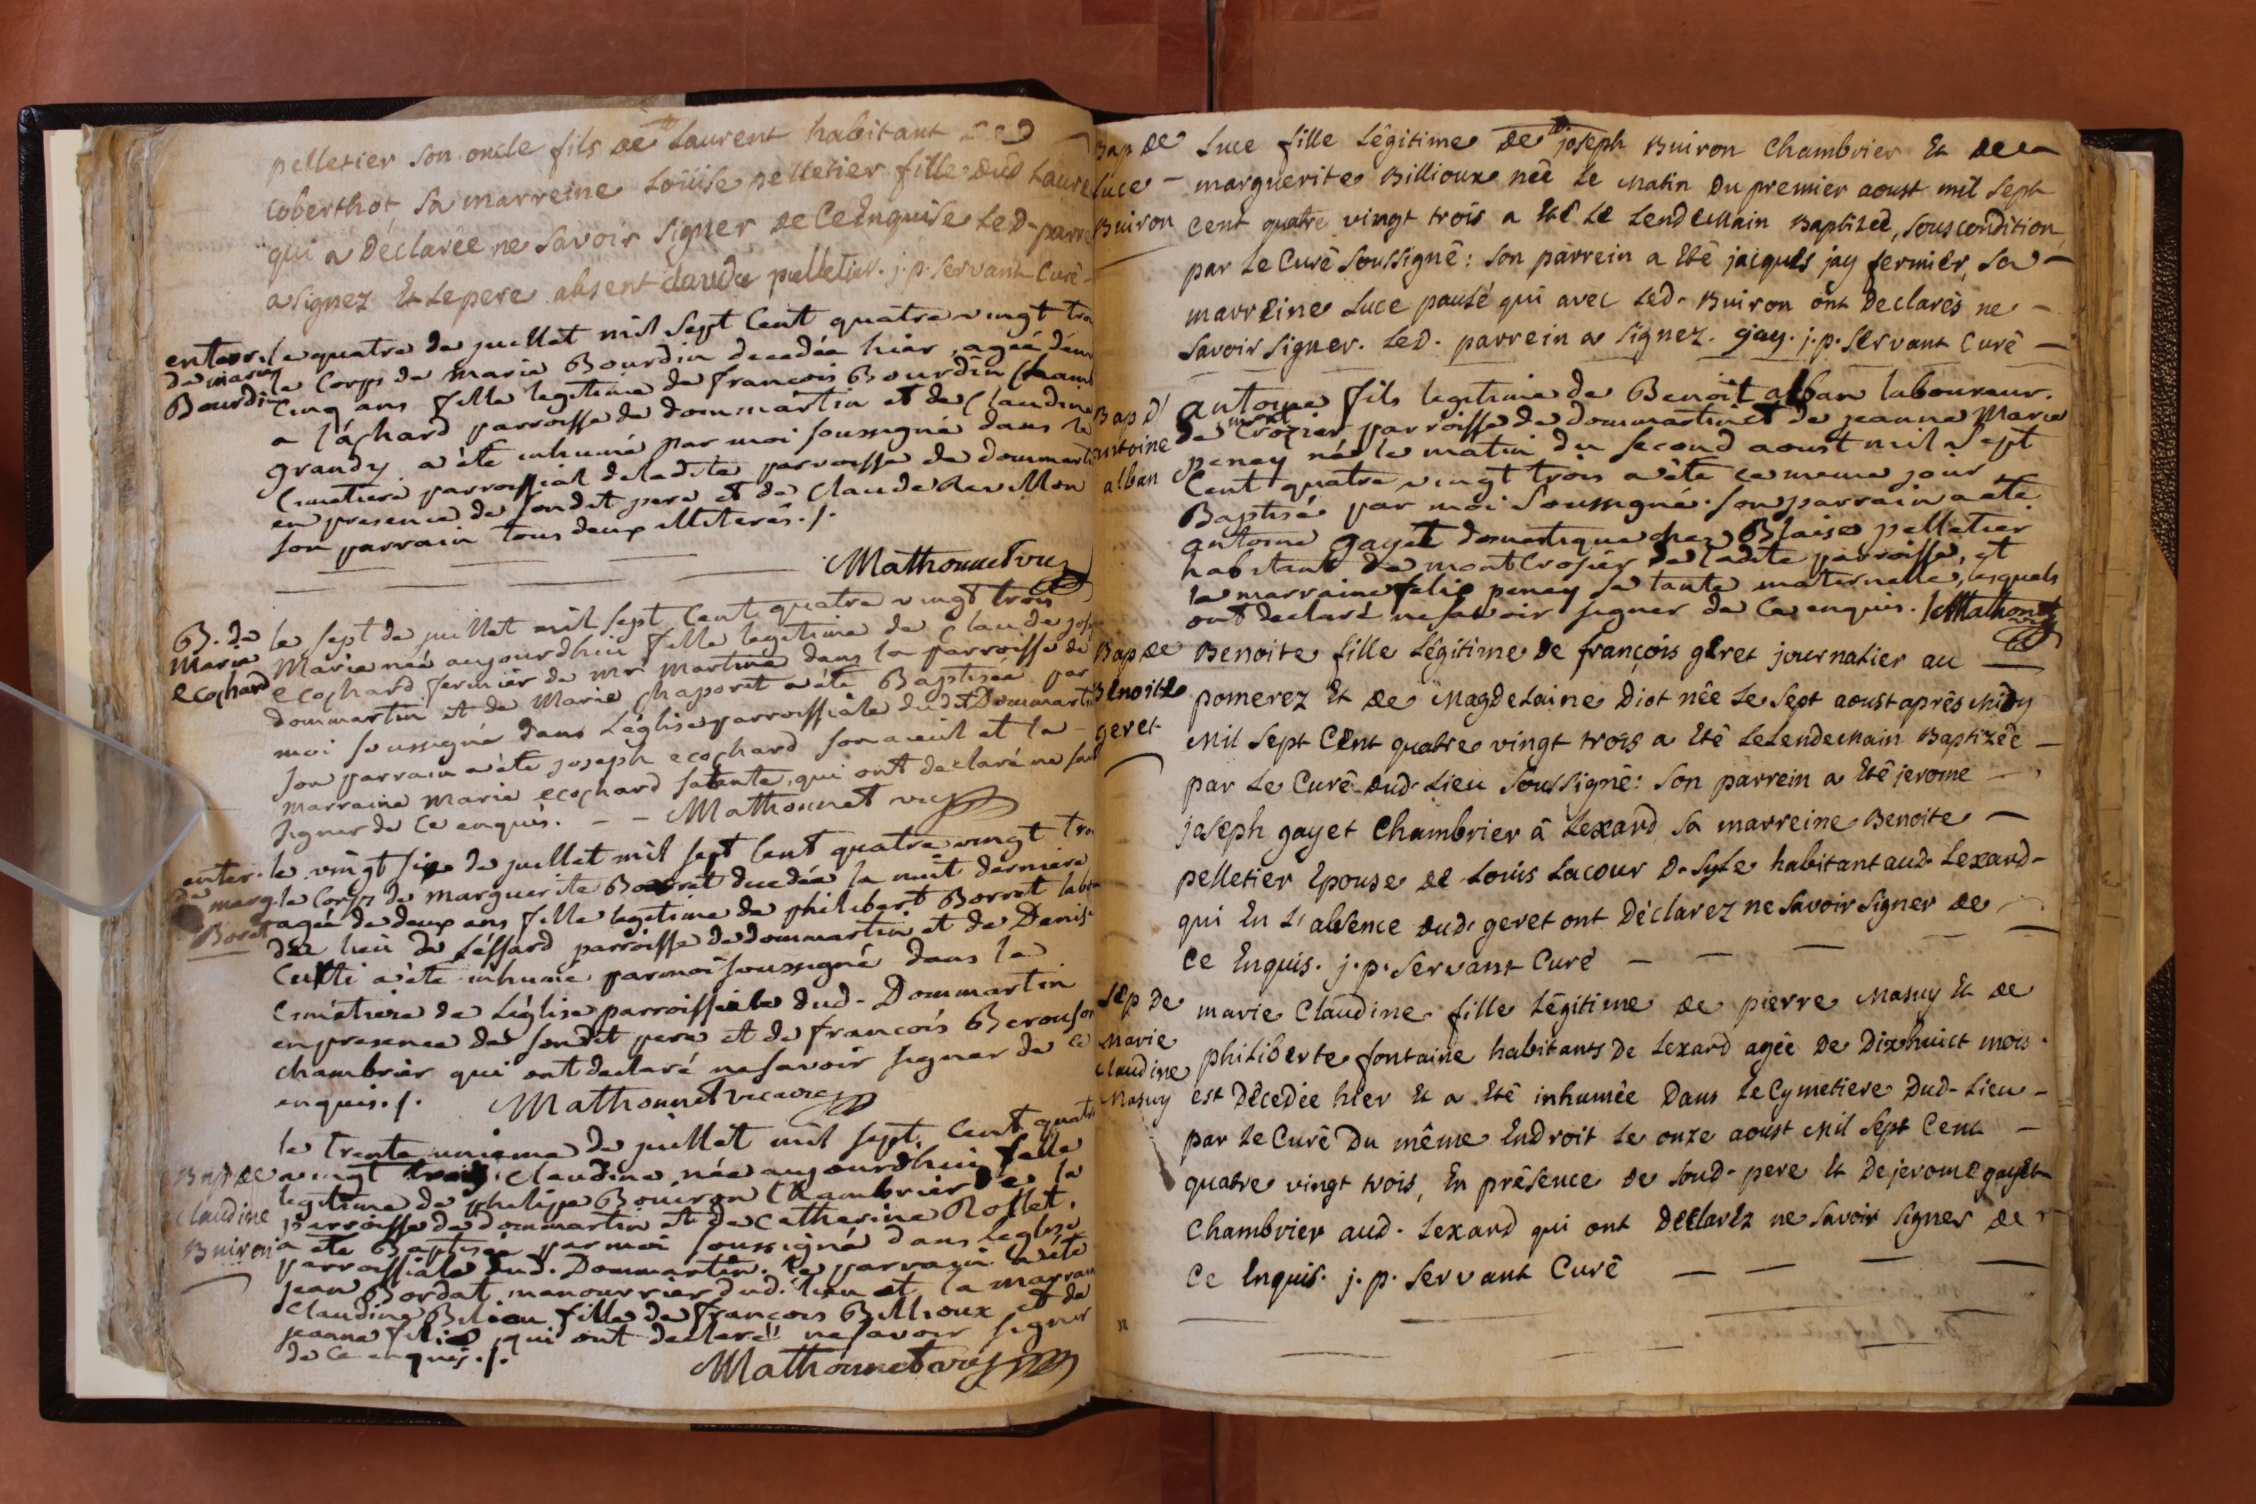 pelletier son oncle fils de Laurent habitant
Coberthot, sa marreine Loüise pelletier fille dud Laure
qui a Déclarée ne savoir signer de ce Enquise Led. parre
a signez Et Le pere absent claude pelletier. j. p. servant Curé
enterr. le quatre de juillet mil sept cent quatre vingt tro
de marie le Corps de marie Bourdin decedée hier, agée d'en
Bourdin Cinq ans fille legitime de francois Bourdin Cham
a l'áchard parroisse de dommartin et de Claudine
grandy a été inhumé par moi soussigné dans le
Cimetiere parroissial de ladite parroisse de dommarti
en presence de son dit pere et de Claude Revillon
son parrain tous deux illiterés./.
Mathonnet vic
B. de le sept de juillet mil sept cent quatre vingt trois
Marie Marie née aujourdhui fille legitime de Claude jose
ecochard ecochard fermier de mr martine dans la parroisse de
dommartin et de Marie chaporet a été Baptisée par
moi soussigné dans L'église parroissiale dudit Dommarti
son parrain a été joseph ecochard son aieul et la
marraine marie ecochard sa tante, qui ont declaré ne sav
signer de ce enquis. - - Mathonnet vic
enter. le vingt six de juillet mil sept cent quatre vingt tro
de marg. le Corps de marguerite Borrat decedée la nuit derniere
Borat agée de deux ans fille legitime de philibert Borrot labo
du lieu de Léssard parroisse de dommartin et de Denise
Culti a été inhumé par moi soussigné dans le
cimétiere de L'église parroissiale dud. Dommartin
en presence de son dit pere et de francois Berouson
chambrier qui ont declaré ne savoir signer de ce
enquis./. Mathonnet vicaire
le trente unieme de juillet mil sept cent quatr
Bap de vingt trois, claudine, née aujourdhui fille
Claudine legitime de philipe Bouiron Chambrier de la
parroisse de dommartin et de Catherine Rollet,
Buiron a été Baptisée par moi soussigné dans leglise
parroissiale dud. Dommartin. le parrain a été
jean Bordat manouvrier dud. lieu et la marrain
claudine Beliou fille de francois Billioux et de
jeanne felie, qui ont declaré ne savoir signer
de ce enquis./.
Mathonnet vic
Bap de Luce fille Légitime de joseph Buiron Chambrier Et de
Luce marguerite Billioux née Le Matin Du premier aoust mil sept
Buiron cent quatre vingt trois a Eté Le Lendemain Baptizée, sous condition
par Le Curé soussigné: son parrein a Eté jacques jay fermier, sa
marreine Luce pausé qui avec Led. Buiron ont Declarés ne
savoir signer. Led. parrein a signez. gay. j. p. servant Curé
Bap d' antoine fils legitime de Benoit alban laboureur.
antoine de mont Crozier parroisse de dommartin et de jeanne Marie
alban peney né le matin du second aoust mil sept
Cent quatre vingt trois a été ce meme jour
Baptisé par moi soussigné. son parrain a été
antoine gayet domestique chez Blaise pelletier
habitant de montcrosier de ladite parroisse, et
la marraine felie peney sa tante maternelle, lesquels
ont declaré ne savoir signer de ce enquis. Mathonnet
Bap de Benoite fille Légitime de françois geret journalier au
Benoite pomerez Et de Magdelaine Diot née Le sept aoust aprés Midy
geret Mil sept Cent quatre vingt trois a Eté Le Lendemain Baptizée
par Le Curé dud. Lieu soussigné: son parrein a Eté jerome
joseph gayet Chambrier â Lexard, sa marreine Benoite
pelletier Epouse de Louis Lacour D. syle habitant aud. Lexard
qui En L'absence dud. geret ont Déclarez ne savoir signer de
ce Enquis. j. p. servant Curé
Sep de marie Claudine fille Légitime de pierre Masuy Et de
Marie philiberte fontaine habitants de Lexard agée de Dixhuict mois
Claudine est Décedée hier Et a Eté inhumée Dans Le Cymetiere Dud. Lieu
Masuy par Le Curé Du même Endroit Le onze aoust Mil sept Cent
quatre vingt trois, En présence de soud. pere Et de jerome gayet
Chambrier aud. Lexard qui ont Déclarez ne savoir signer de
ce Enquis. j. p. servant Curé